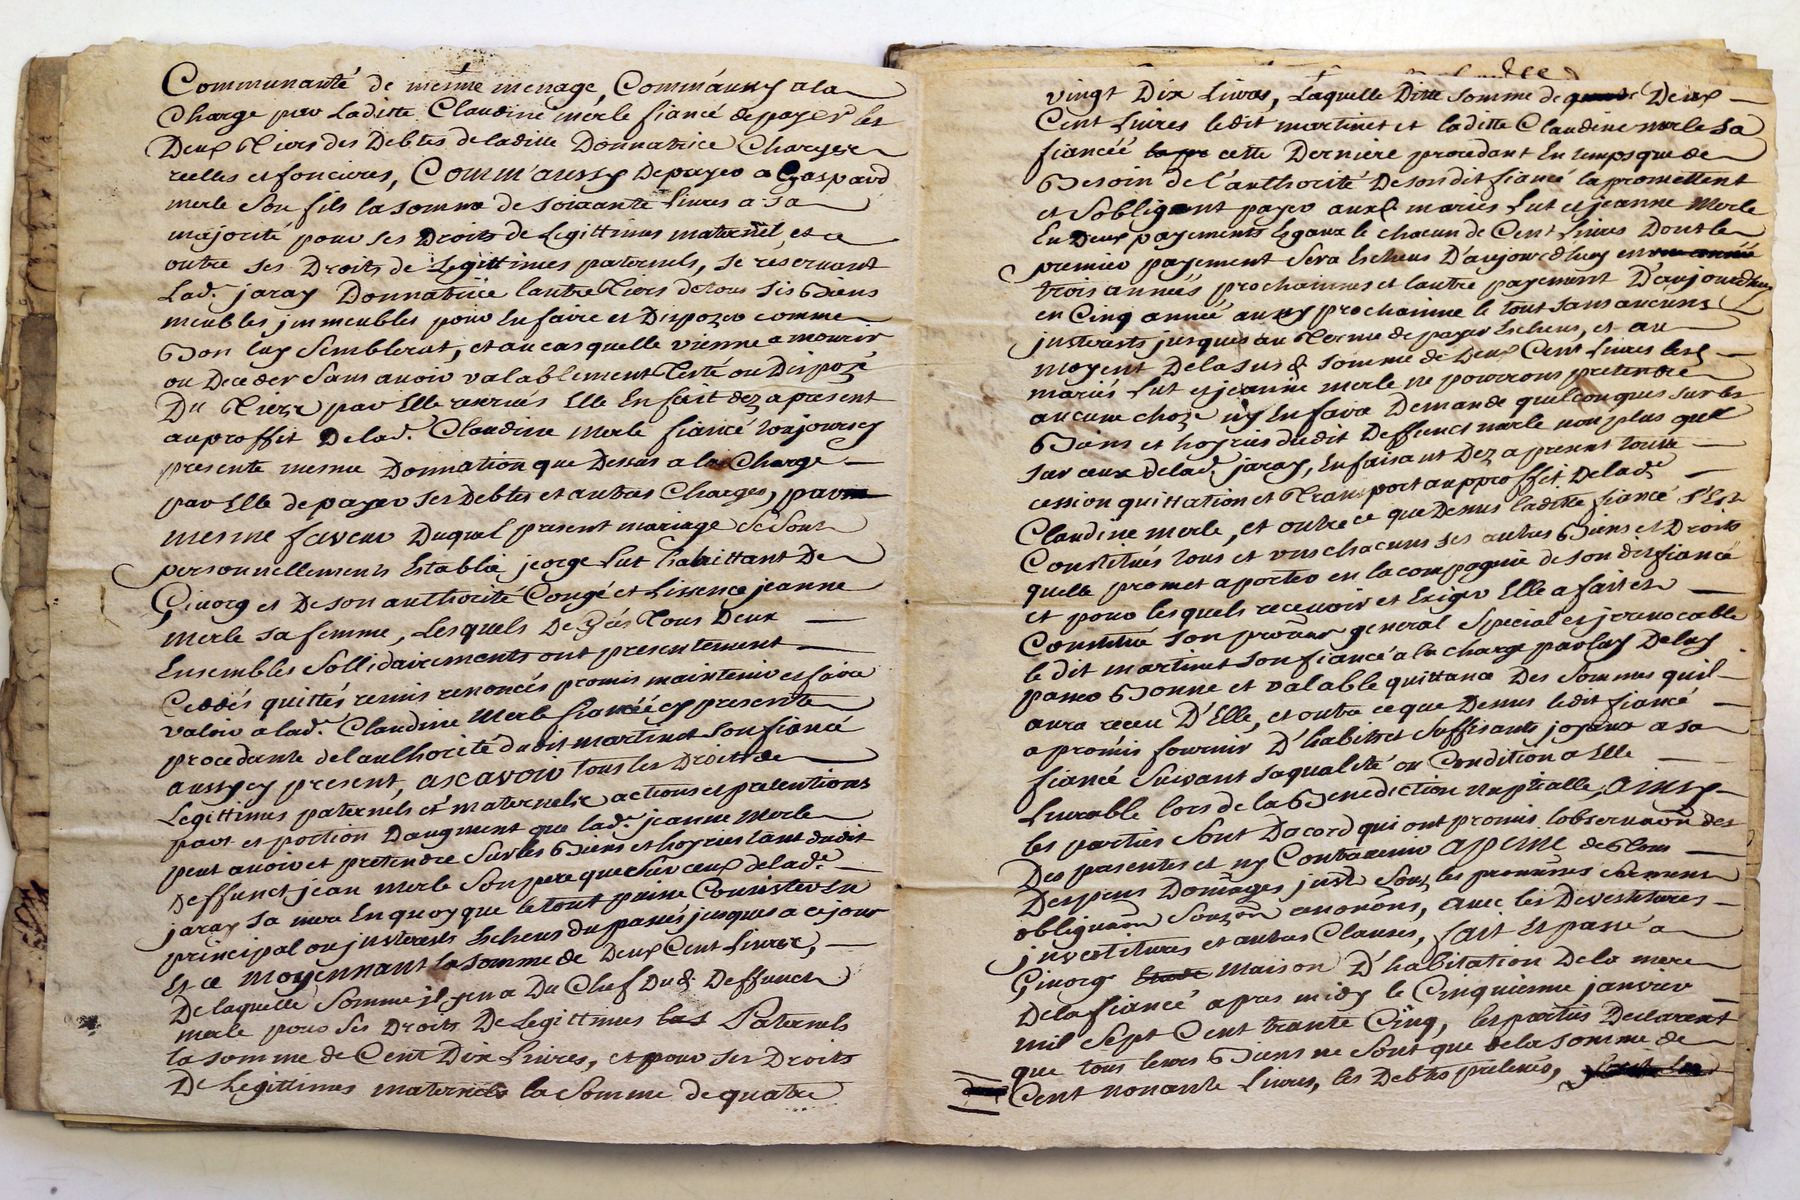 Communauté de mesme menage, Comm'aussy a la
Charge par Laditte Claudine merle fiancé de payer les
Deux Tiers des Debtes de laditte Donnatrice Charges
reelles et foncieres, Comm'aussy De payer a Gaspard
merle Son fils la somme de soixante Livres a sa
majorité pour ses Droits de Legittimes maternel, et ce
outre ses Droits de Legittimes paternels, se reservant
Lad.e jaray Donnatrice lautre Tiers de tous sis Biens
meubles immeubles pour En faire et Dispozer comme
Bon luy Semblerat, et au cas quelle vienne a mourir
ou Deceder Sans avoir valablement Testé ou Dispozé
Du Tierze par Elle reservés Elle En fait dez a present
au proffit De lad.e Claudine Merle fiancé toujours cy
presente mesme Donnation que Dessus a la Charge
par Elle de payer ses Debtes et autres Charges, par
mesme faveur Duquel present mariage Se Sont
personnellements Establie jeorge Lut habittant De
Givorg et De son authorité Congé et Lissence jeanne
Merle sa femme, Lesquels De Grés Tous Deux
Ensembles Sollidairements ont presentement
Ceddés quittés remis renoncés promis maintenir et faire
valoir a lad.e Claudine Merle fiancée cy presente
procedante de l'authorité dudit martinet Son fiancé
aussy cy present, ascavoir tous les Droits de
Legittimes paternels et maternels actions et pretentions
part et portion D'augment que lad.e jeanne Merle
peut avoir et pretendre Sur les Biens et hoyries tant dudit
Deffunct jean merle Son pere que Sur ceux de lad.e
jaray Sa mere En quoy que le tout puisse Consister En
principal ou justerests Escheus du passé jusques a ce jour
Et ce moyennant la somme de Deux Cent Livres,
De laquelle Somme il y en a Du Chef Dud. Deffunct
merle pour Ses Droits De Legittimes Paternels
la somme de Cent Dix Livres, et pour ses Droits
De Legittimes maternels la Somme de quatre
vingt Dix Livres, Laquelle Ditte Somme de Deux
Cent Livres ledit martinet et laditte Claudine merle sa
fiancée cette Derniere procedant En temps que de
Besoin de l'authorité De son dit fiancé la promettent
et S'obligent payer aux mariés Lut et jeanne Merle
En Deux payements Egaux le chacun de Cent Livres Dont le
premier payement Sera Escheus D'aujourdhuy en
trois années prochaines et lautre payement D'aujourdhuy
en Cinq année aussy prochaine le tout sans aucuns
justerests jusques au Terme de payer Escheus, et au
moyent De la susd. somme de Deux Cent Livres lesd.
mariés Lut et jeanne merle ne pourrons pretendre
aucune choze ny En faire Demande quelconques sur les
Biens et hoyries dudit Deffunct merle non plus que
sur ceux de lad.e jaray, En faisant Dez a present toutte
cession quittation et Transport au proffit De lad.e
Claudine merle, et outre ce que Dessus laditte fiancé S'Est
Constituée tous et uns chacuns ses autres Biens et Droits
quelle promet a porter en la compagnie de son dit fiancé
et pour lesquels recevoir et Exiger Elle a fait et
Constitué son general Special et jrrevocable
le dit martinet son fiancé a la charge par luy De luy
passer Bonne et valable quittance Des Sommes quil
aura receu D'Elle, et outre ce que Dessus ledit fiancé
a promis fournir D'habits et Suffisants joyaux a sa
fiancé Suivant sa qualité ou Condition a Elle
Livrable lors de la Benediction nuptialle, ainsy
les parties Sont Dacord qui ont promis l'observaon des
Des presentes et ny Contrevenir a peine de tous
Despens Domages
obligaon avec les Devestitures
jnvestitures et autres Clauses, fait et passé a
Givorg maison D'habitation De la mere
De la fiancé apres midy le Cinquieme janvier
mil Sept Cent trante Cinq, les parties Declarent
que tous leurs Biens ne Sont que de la somme de
Cent nonante Livres, les Debtes prelevés,